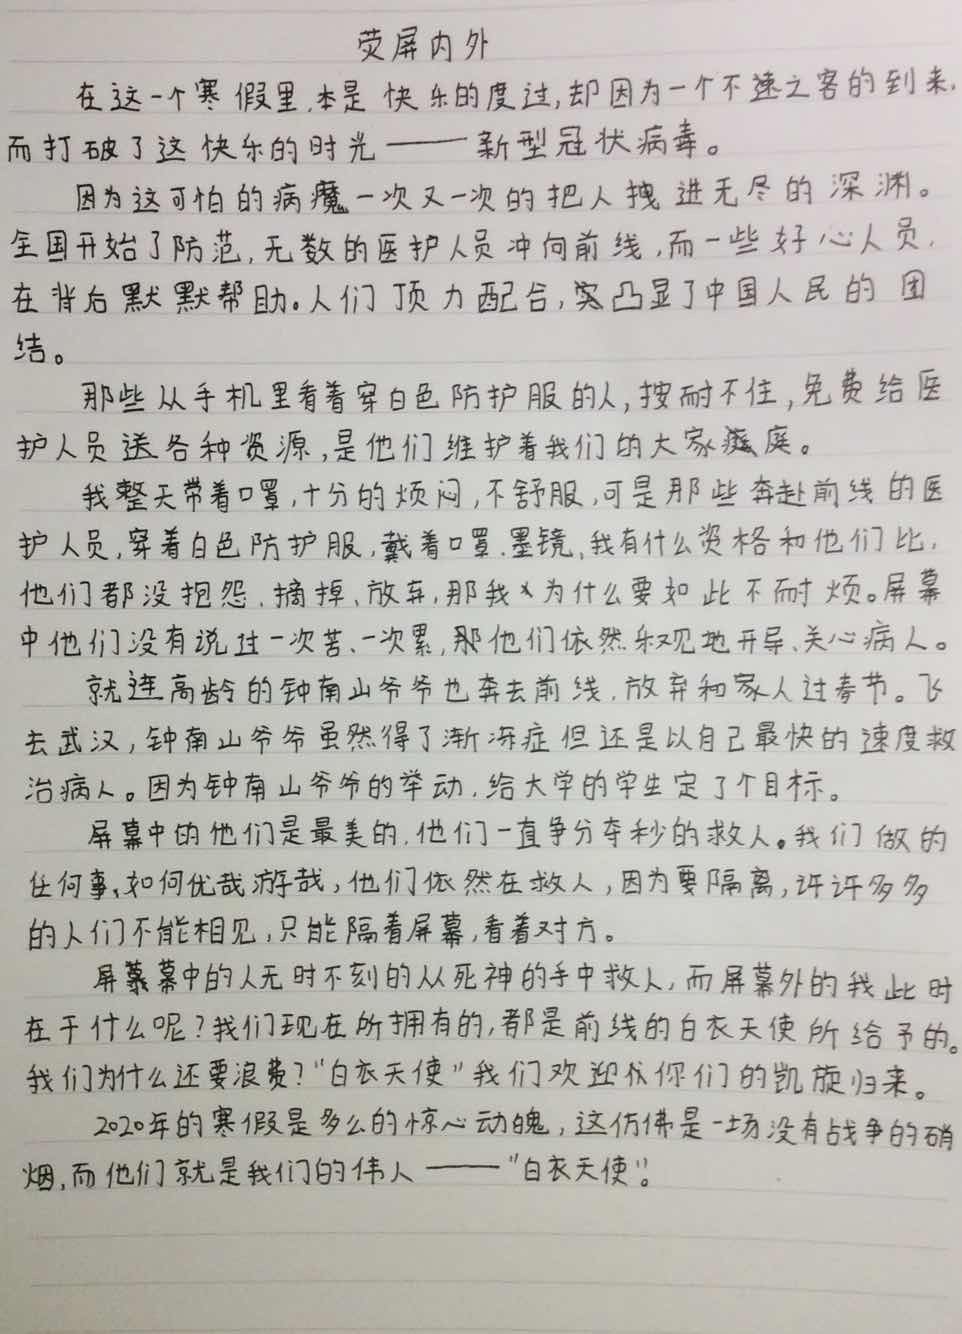 荧屏内外
在这一个寒假里,本是快乐的度过,却因为一个不速之客的到来,
而打破了这快乐的时光——新型冠状病毒。
因为这可怕的病魔一次又一次的把人拽进无尽的深渊。
全国开始了防范,无数的医护人员冲向前线,而一些好心人员,
在背后默默帮助。人们顶力配合,突凸显了中国人民的团
结。
那些从手机里看着穿白色防护服的人,按耐不住,免费给医
护人员送各种资源,是他们维护着我们的大家庭。
我整天带着口罩,十分的烦闷,不舒服,可是那些奔赴前线的医
护人员,穿着白色防护服,戴着口罩、墨镜,我有什么资格和他们比,
他们都没抱怨、摘掉、放弃,那我为什么要如此不耐烦。屏幕
中他们没有说过一次苦、一次累,那他们依然乐观地开导、关心病人。
就连高龄的钟南山爷爷也奔去前线,放弃和家人过春节。飞
去武汉,钟南山爷爷虽然得了渐冻症但还是以自己最快的速度救
治病人。因为钟南山爷爷的举动,给大学的学生定了个目标。
屏幕中的他们是最美的,他们一直争分夺秒的救人。我们做的
任何事,如何优哉游哉,他们依然在救人,因为要隔离,许许多多
的人们不能相见,只能隔着屏幕,看着对方。
屏幕中的人无时不刻的从死神的手中救人,而屏幕外的我此时
在干什么呢?我们现在所拥有的,都是前线的白衣天使所给予的。
我们为什么还要浪费?“白衣天使”我们欢迎你们的凯旋归来。
2020年的寒假是多么的惊心动魄,这仿佛是一场没有战争的硝
烟,而他们就是我们的伟人——“白衣天使”。